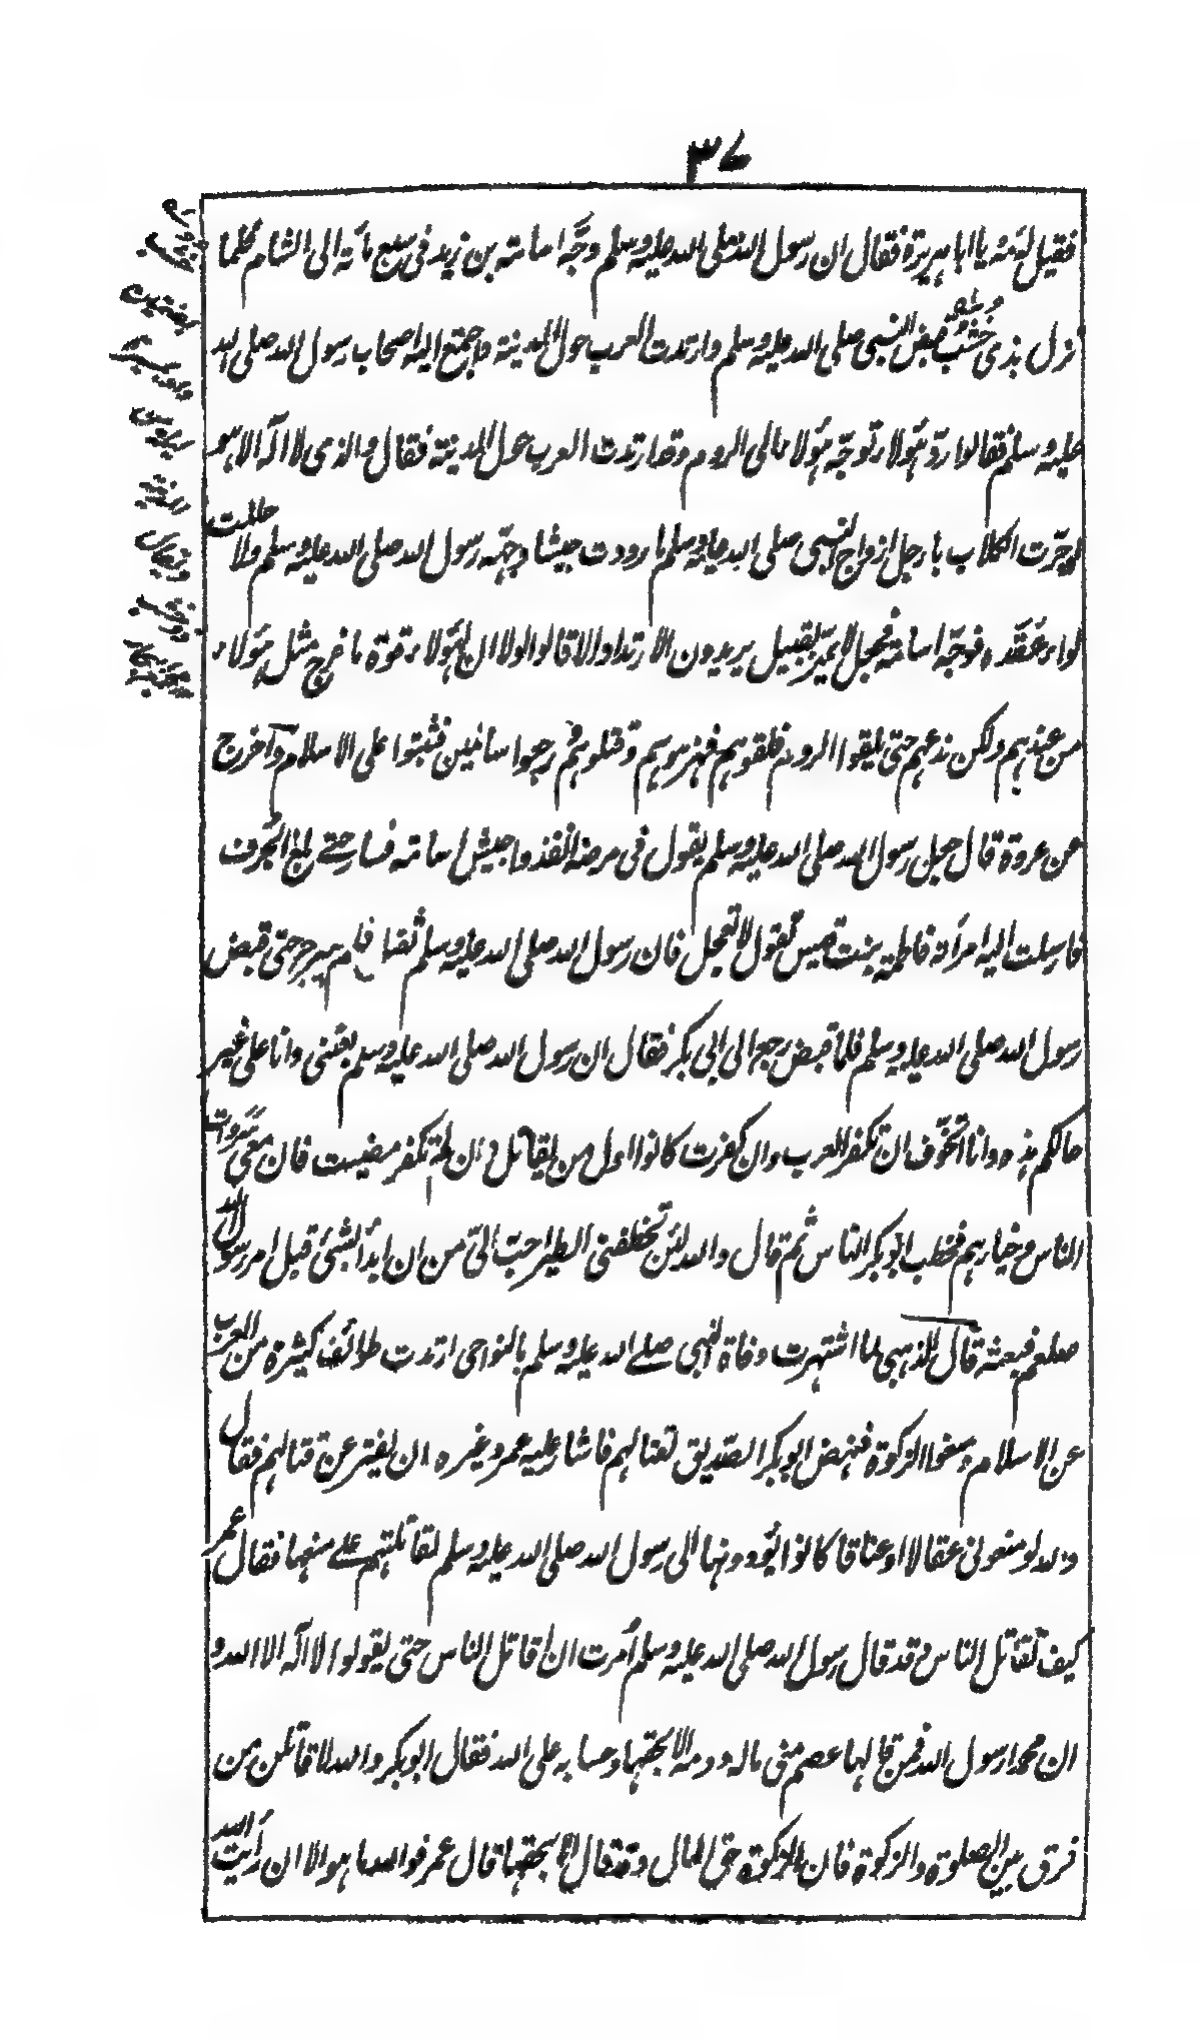 ٣٧
فقيل له مه يا ابا هريرة فقال ان رسول الله صلى الله عليه وسلم وجّه اسامة بن زيد فى سبع مأية الى الشام فلما
نزل بذى خشب قبض النبى صلى الله عليه وسلم وارتدت العرب حول المدينة واجتمع اليه اصحاب رسول الله صلى الله
عليه وسلم فقالوا ردّ هؤلاء توجّه هؤلاء الى الروم وقد ارتدت العرب حول المدينة فقال والذى لا اله الا هو
لو جرّت الكلاب بارجل ازواج النبى صلى الله عليه وسلم ما رددت جيشا وجّهه رسول الله صلى الله عليه وسلم ولا حللت
لواء عقده فوجّه اسامة فجعل لا يمرّ بقبيل يريدون الارتداد الا قالوا لولا ان لهؤلاء قوة ما خرج مثل هؤلاء
من عندهم ولكن ندعهم حتى يلقوا الروم فلقوهم فهزموهم وقتلوهم ورجعوا سالمين فثبتوا على الاسلام وآخرج
عن عروة قال جعل رسول الله صلى الله عليه وسلم يقول فى مرضه انفذوا جيش اسامة فسار حتے بلغ الجرف
فارسلت اليه امرأته فاطمة بنت قيس تقول لا تعجل فان رسول الله صلى الله عليه وسلم ثقل فلم يبرح حتى قبض
رسول الله صلى الله عليه وسلم فلما قبض رجع الى ابى بكر فقال ان رسول الله صلى الله عليه وسلم بعثنى وانا على غير
حالكم هذه وانا اتخوّف ان تكفر العرب وان كفرت كانوا اول من يقاتل وان لم تكفر مضيت فان معى سروات
الناس وخيارهم فخطب ابو بكر الناس ثم قال والله لئن تخطفنى الطير احبّ الىّ من ان ابدأ بشئ قبل امر رسول الله
صلعم فبعثه قال الذهبى لما اشتهرت وفاة النبى صلے الله عليه وسلم بالنواحى ارتدت طوائف كثيرة من العرب
عن الاسلام ومنعوا الزكوة فنهض ابو بكر الصدّيق لقتالهم فاشار عليه عمر وغيره ان يفتر عن قتالهم فقال
والله لو منعونى عقالا او عناقا كانوا يؤدونها الى رسول الله صلى الله عليه وسلم لقاتلتهم علے منعها فقال عمر
كيف تقاتل الناس وقد قال رسول الله صلى الله عليه وسلم أمرت ان اقاتل الناس حتى يقولوا لا اله الا الله و
ان محمدا رسول الله فمن قالها عصم منى ماله ودمه الا بحقها وحسابه على الله فقال ابو بكر والله لاقاتلن من
فرق بين الصلوة والزكوة فان الزكوة حق المال وقد قال الا بحقها قال عمر فوالله ما هو الا ان رأيت الله